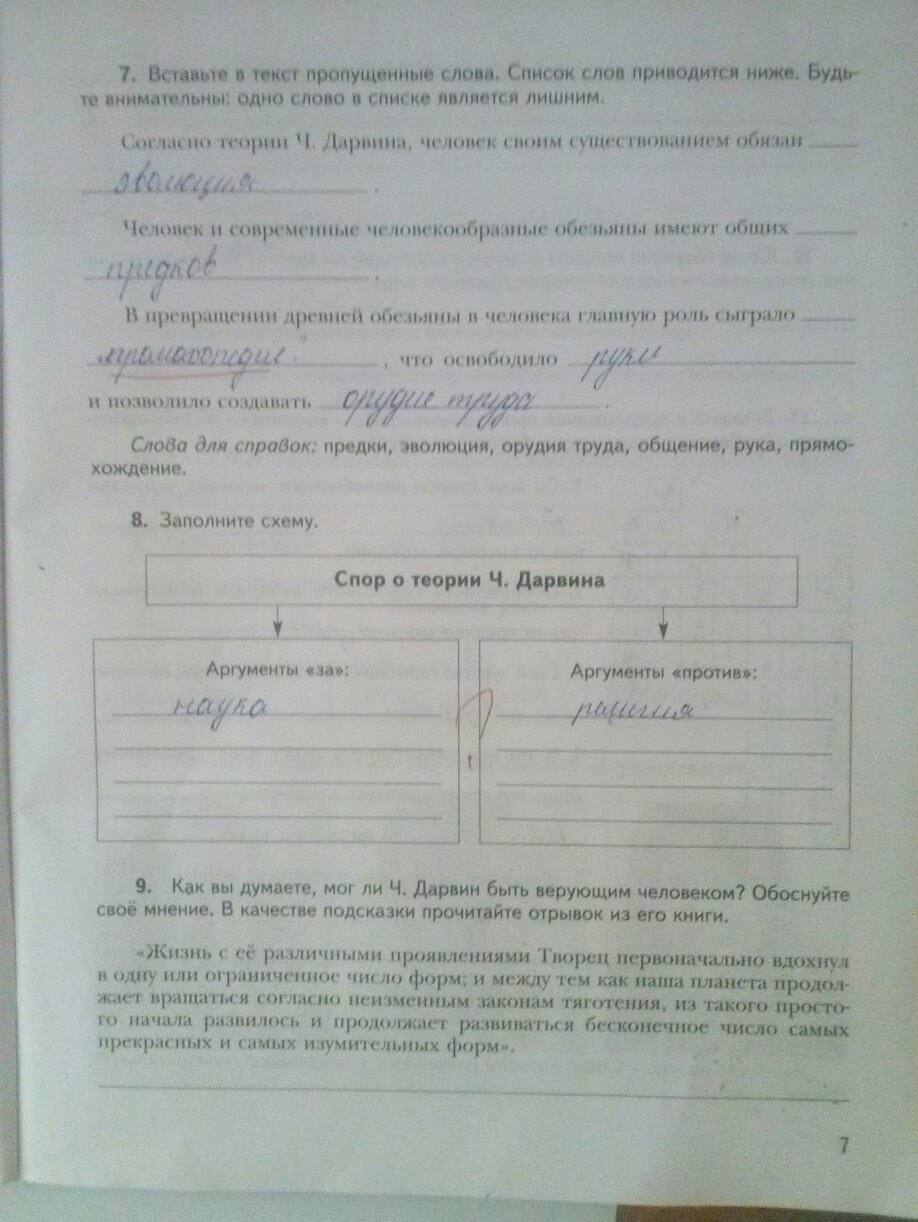 7. Вставьте в текст пропущенные слова. Список слов приводится ниже. Будь-
те внимательны: одно слово в списке является лишним.
Согласно теории Ч. Дарвина, человек своим существованием обязан
эволюция.
Человек и современные человекообразные обезьяны имеют общих
предков.
В превращении древней обезьяны в человека главную роль сыграло
, что освободило руки
и позволило создавать орудие труда.
Слова для справок: предки, эволюция, орудия труда, общение, рука, прямо-
хождение.
8. Заполните схему.
Спор о теории Ч. Дарвина
Аргументы «за»:
наука
Аргументы «против»:
религия
9. Как вы думаете, мог ли Ч. Дарвин быть верующим человеком? Обоснуйте
своё мнение. В качестве подсказки прочитайте отрывок из его книги.
«Жизнь с её различными проявлениями Творец первоначально вдохнул
в одну или ограниченное число форм; и между тем как наша планета продол-
жает вращаться согласно неизменным законам тяготения, из такого просто-
го начала развилось и продолжает развиваться бесконечное число самых
прекрасных и самых изумительных форм».
7